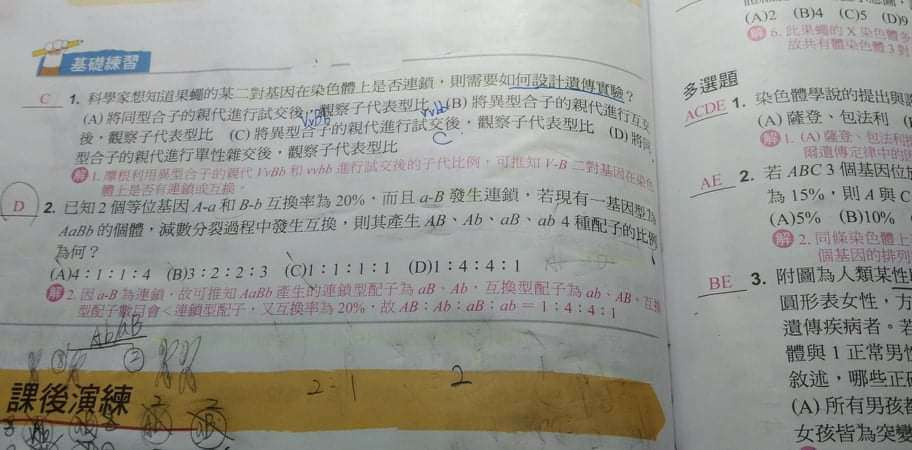 基礎練習
C 1. 科學家想知道果蠅的某二對基因在染色體上是否連鎖，則需要如何設計遺傳實驗？
(A) 將同型合子的親代進行試交後，觀察子代表型比 (B) 將異型合子的親代進行互交
後，觀察子代表型比 (C) 將異型合子的親代進行試交後，觀察子代表型比 (D) 將同
型合子的親代進行單性雜交後，觀察子代表型比
VvBb
vvbb
C
解 1. 摩根利用異型合子的親代 VvBb 和 vvbb 進行試交後的子代比例，可推知 V-B 二對基因在染色
體上是否有連鎖或互換。
D 2. 已知 2 個等位基因 A-a 和 B-b 互換率為 20%，而且 a-B 發生連鎖，若現有一基因型為
AaBb 的個體，減數分裂過程中發生互換，則其產生 AB、Ab、aB、ab 4 種配子的比例
為何？
(A)4：1：1：4 (B)3：2：2：3 (C)1：1：1：1 (D)1：4：4：1
解 2. 因 a-B 為連鎖，故可推知 AaBb 產生的連鎖型配子為 aB、Ab，互換型配子為 ab、AB。互換
型配子數目會＜連鎖型配子，又互換率為 20%，故 AB：Ab：aB：ab = 1：4：4：1
AbaB
2 = 1
2
課後演練
(A)2 (B)4 (C)5 (D)9
解 6. 此果蠅的 X 染色體多
故共有體染色體 3 對
多選題
ACDE 1. 染色體學說的提出與
(A) 薩登、包法利
解 1. (A) 薩登、包法利
爾遺傳定律中的
AE 2. 若 ABC 3 個基因位
為 15%，則 A 與 C
(A)5% (B)10%
解 2. 同條染色體上
個基因的排列
BE 3. 附圖為人類某性
圓形表女性，方
遺傳疾病者。若
體與 1 正常男性
敘述，哪些正確
(A) 所有男孩都
女孩皆為突變